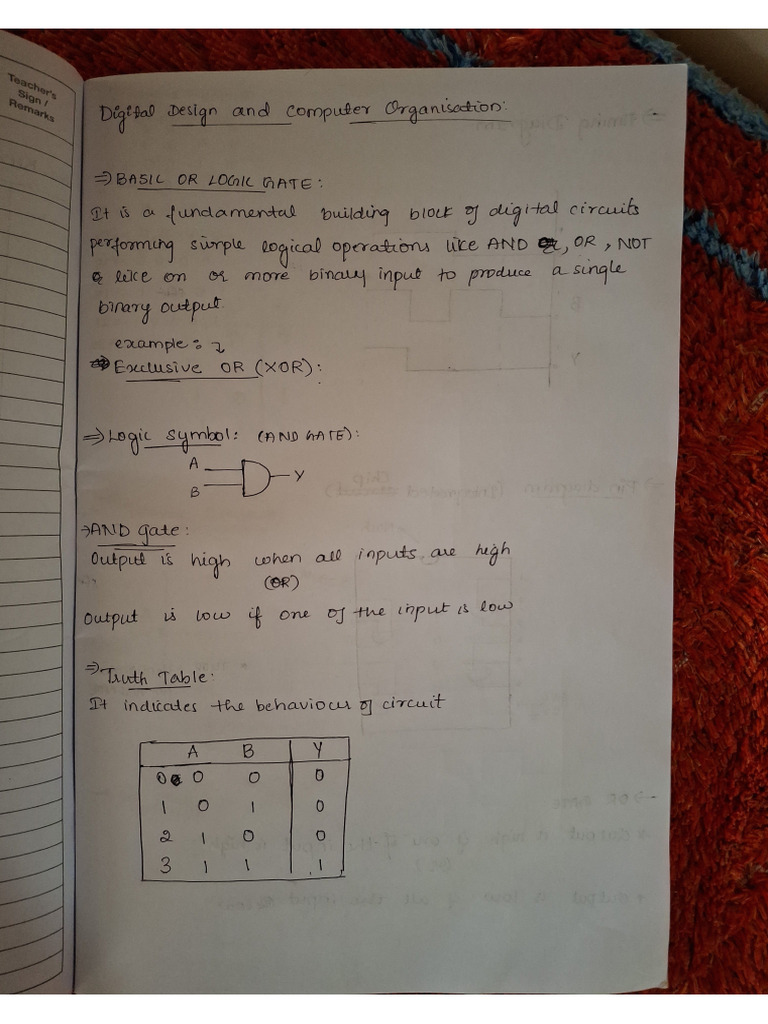 Teacher's
Sign /
Remarks
Digital Design and Computer Organisation:
⇒ BASIC OR LOGIC GATE:
It is a fundamental building block of digital circuits
performing simple logical operations like AND, OR, NOT
like on or more binary input to produce a single
binary output.
example:
Exclusive OR (XOR):
⇒ Logic symbol: (AND GATE):
A
Y
B
⇒ AND gate:
Output is high when all inputs are high
(OR)
Output is low if one of the input is low
⇒ Truth Table:
It indicates the behaviour of circuit
A B Y
0 0 0 0
1 0 1 0
2 1 0 0
3 1 1 1